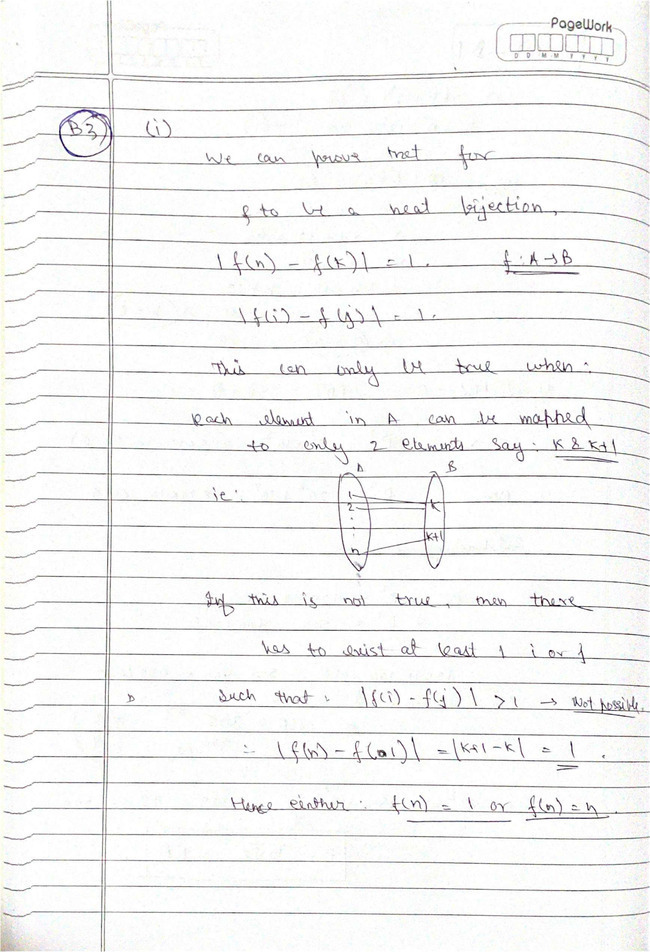 PageWork
D D M M Y Y Y Y
B3) (i)
We can prove that for
f to be a neat bijection,
|f(n) - f(k)| = 1. f : A → B
|f(i) - f(j)| = 1.
This can only be true when :
Each element in A can be mapped
to only 2 elements say : K & K+1
A B
ie :
1
2
n
K
K+1
If this is not true, then there
has to exist at least 1 i or j
such that : |f(i) - f(j)| > 1 → Not possible.
∴ |f(n) - f(1)| = |K+1 - K| = 1 .
Hence einther : f(n) = 1 or f(n) = n .